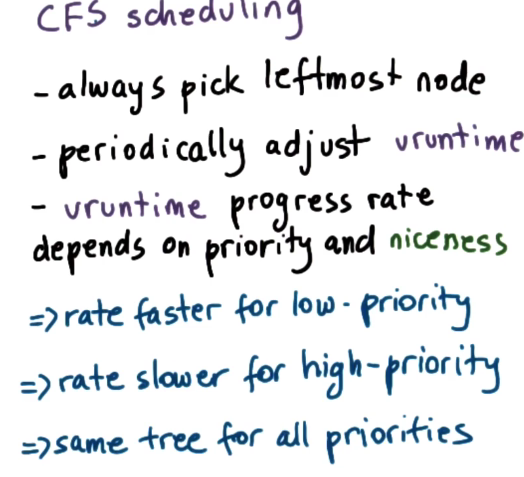 CFS scheduling
- always pick leftmost node
- periodically adjust vruntime
- vruntime progress rate
depends on priority and niceness
=> rate faster for low-priority
=> rate slower for high-priority
=> same tree for all priorities